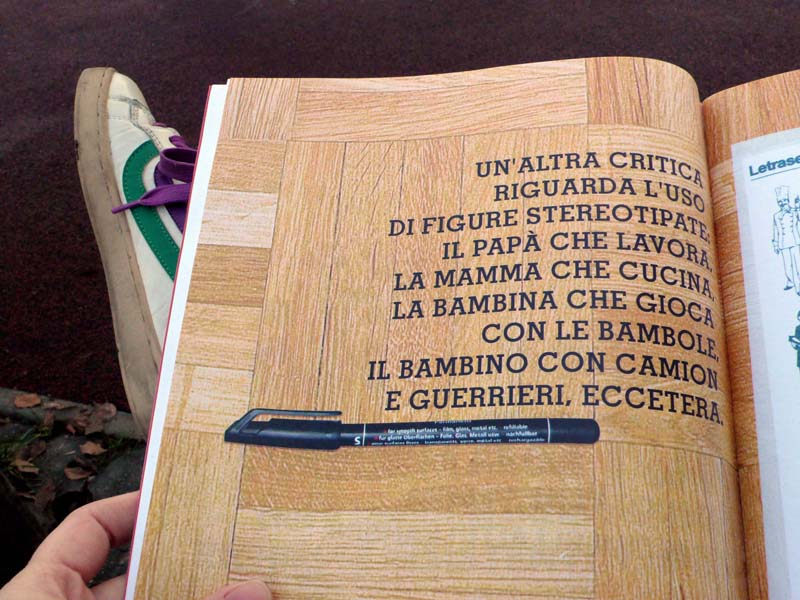 UN'ALTRA CRITICA
RIGUARDA L'USO
DI FIGURE STEREOTIPATE:
IL PAPÀ CHE LAVORA,
LA MAMMA CHE CUCINA,
LA BAMBINA CHE GIOCA
CON LE BAMBOLE,
IL BAMBINO CON CAMION
E GUERRIERI, ECCETERA.
for smooth surfaces - film, glass, metal etc. refillable
S für glatte Oberflächen - Folie, Glas, Metall usw. nachfüllbar
Letrase